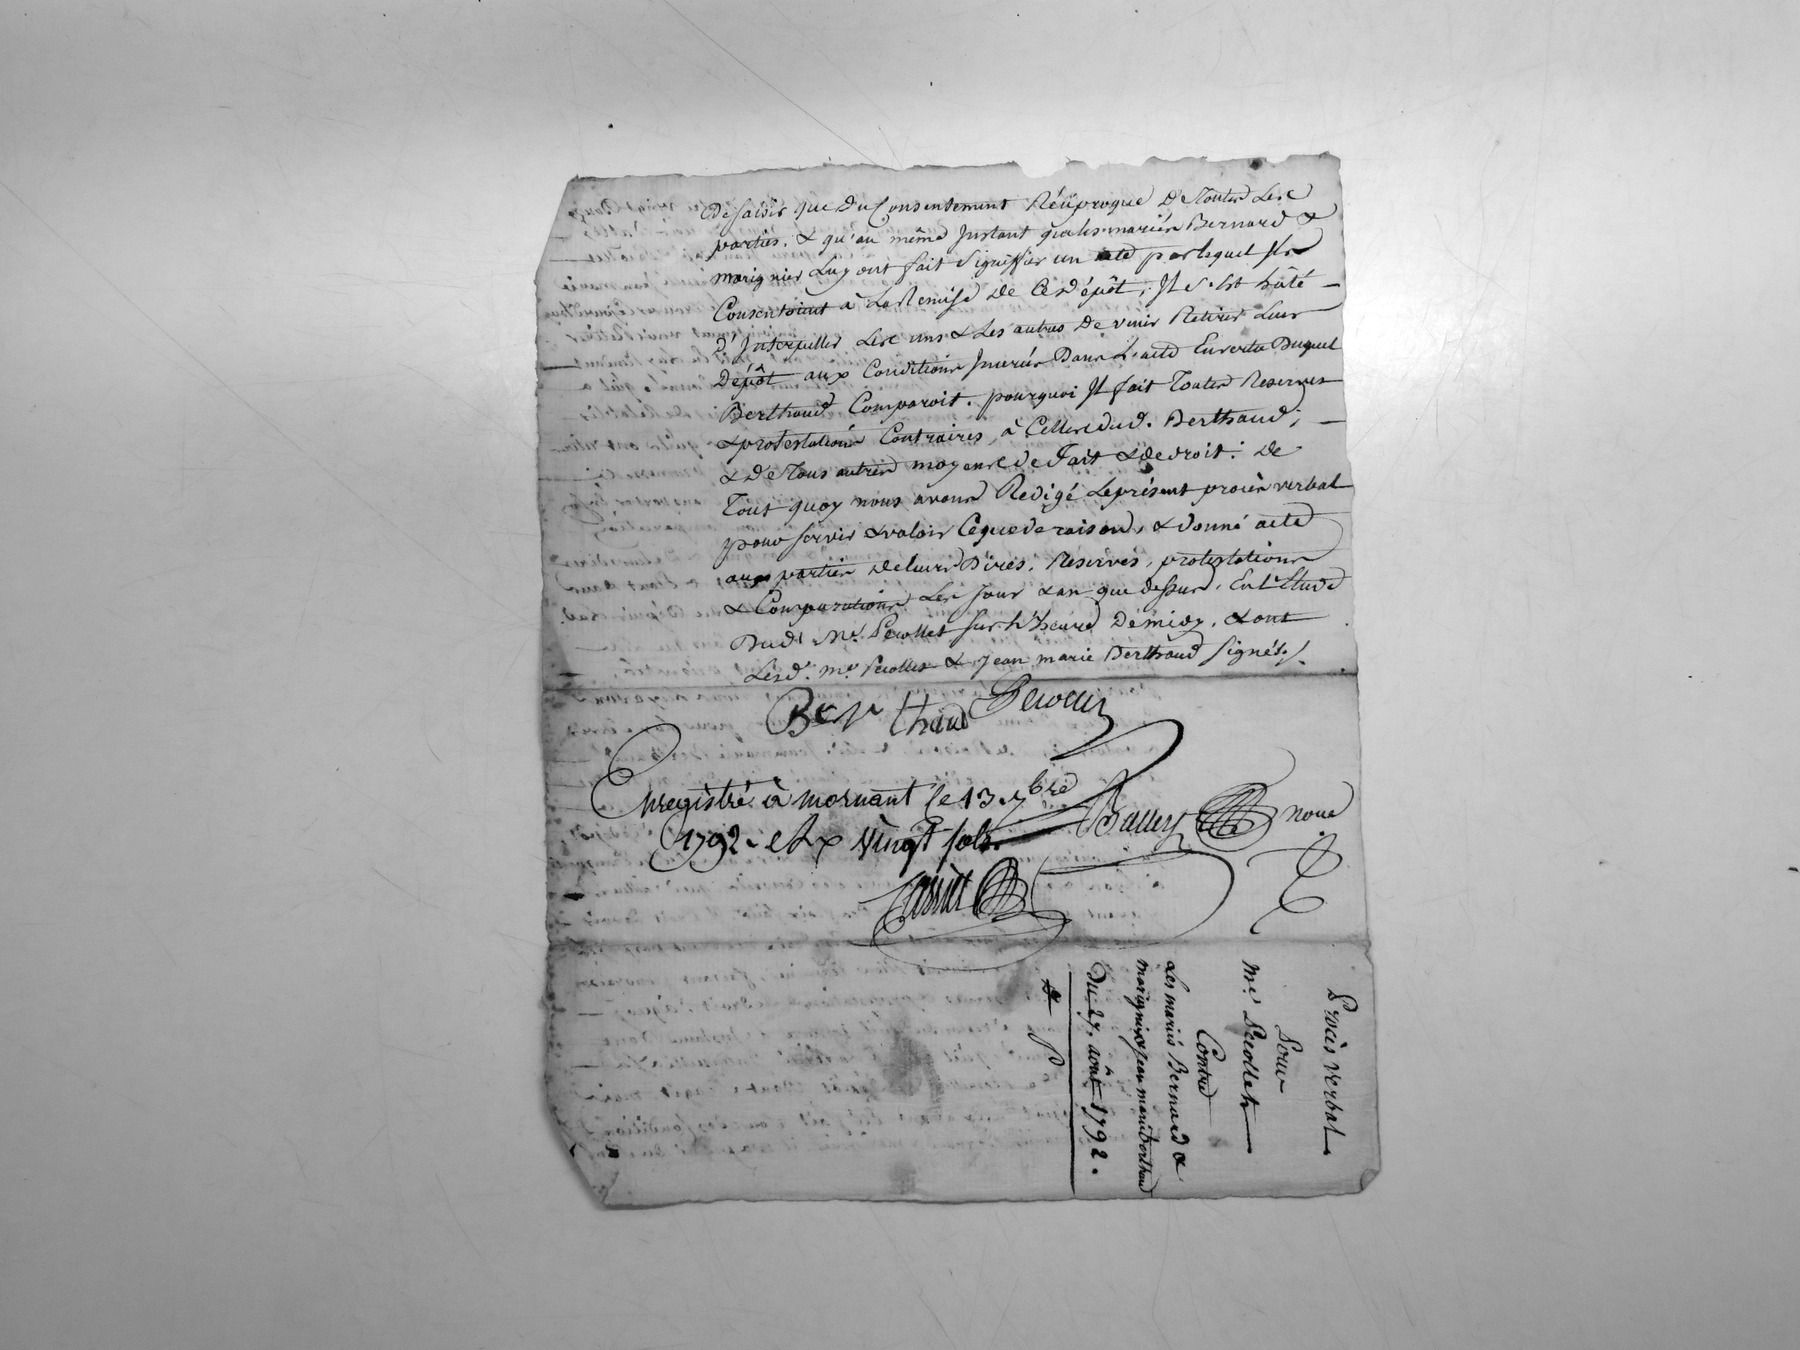 desaisir que du Consentement Réciproque De Toutes Les
parties, & qu'au même Instant que les mariés Bernard &
marignier Luy ont fait Signiffier un acte par lequel Ils
Consentoient à La Remise de Ce Dépôt, Il s'est hâté
D'Interpeller Les uns & Les autres De venir Retirer Leur
Dépôt aux Conditions Inserées Dans L'acte En vertu Duquel
Berthaud Comparoit. pourquoi Il fait Toutes Reserves
& protestations Contraires, à Celles dud. Berthaud;
& De Tous autres moyens de fait & de droit. De
Tout quoy nous avons Redigé Le présent procès verbal
pour servir & valoir Ce que de raison, & donné acte
aux parties de leurs Dires, Reserves, protestations
& Comparutions Les Jour & an que dessus, En L'Etude
Dud. Me. Pecollet sur L'heure De midy, & ont
Lesd. me. Pecollet & Jean marie Berthaud signés./.
Ber thaud Pecollet
Enregistré à mornant le 13. 7bre
1792. vingt sols.
noue
Procès verbal
Pour
Me. Pecollet
Contre
Les mariés Bernard &
marignier & Jean marie berthaud
Du 27. août 1792.